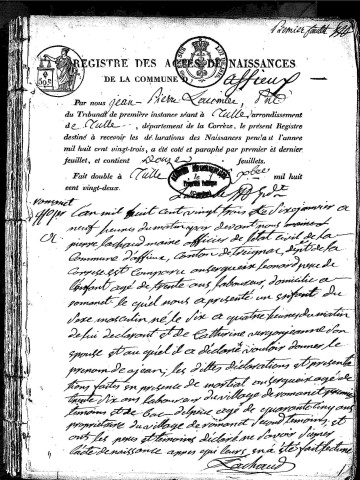 Premier feuillet
REGISTRE DES ACTES DE NAISSANCES
DE LA COMMUNE d'affieux
Par nous jean Pierre Pdt
du Tribunal de première instance séant à Tulle arrondissement
de Tulle, département de la Corrèze, le présent Registre
destiné à recevoir les déclarations des Naissances pendant l'année
mil huit cent vingt-trois, a été coté et paraphé par premier et dernier
feuillet, et contient Douze feuillets.
Fait double à Tulle le xbre mil huit
cent vingt-deux.
L'an mil huit cent vingt trois le six janvier a
neuf heures du matin par devant nous
pierre lachaud maire officier de l'etat civil de la
Commune d'affieux, Canton de treignac, dept de la
Correze est comparu leonard
agé de trente ans laboureur, domicilié a
romanet le quel nous a presenté un enfant du
sexe masculin né le six a quatre heures du matin
de lui declarant et de Catherine son
epouse et au quel il a déclaré vouloir donner le
prenom de jean; les dittes déclarations et presenta
tions faites en presence de martial agé de
trente six ans laboureur du village de romanet premier
temoins et de agé de quarante cinq ans
propriétaire du village de romanet second temoins; et
ont les pere et temoins déclaré ne savoir signer
l'acte de naissance apres que leur en a été fait lecture
Lachaud